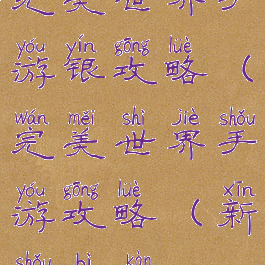 完美世界手
yóu yín gōng lüè
游银攻略（
wán měi shì jiè shǒu
完美世界手
yóu gōng lüè xīn
游攻略（新
shǒu bì kàn